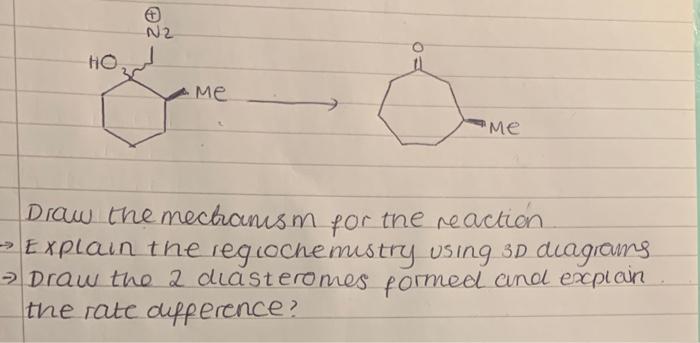 ⊕
N2
HO
Me
O
Me
Draw the mechanism for the reaction
→ Explain the regiochemistry using 3D diagrams
→ Draw the 2 diasteromes formed and explain.
the rate difference?